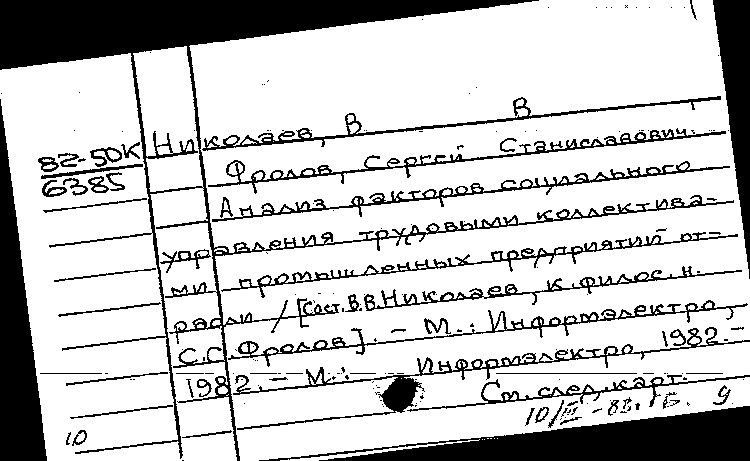 82-50К
6385
Николаев, В В
Фролов, Сергей Станиславович.
Анализ факторов социального
управления трудовыми коллектива=
ми промышленных предприятий от=
расли / [Сост. В.В.Николаев, к.филос.н.
С.С.Фролов]. – М.: Информэлектро,
1982. – М.: Информэлектро, 1982.–
См. след. карт.
10/III-83г. Б. 9
10